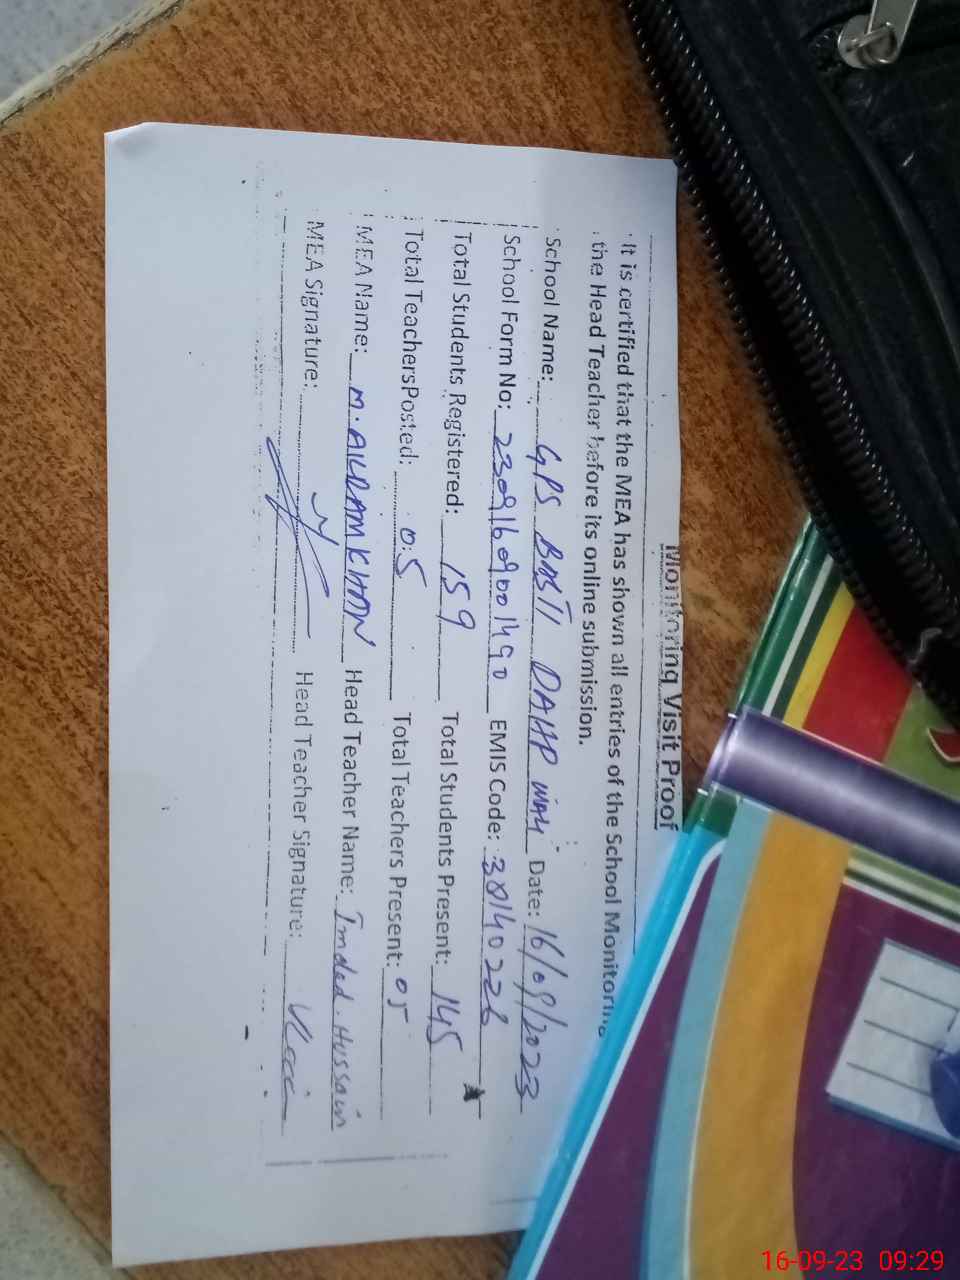 Monitoring Visit Proof
It is certified that the MEA has shown all entries of the School Monitoring
the Head Teacher before its online submission.
School Name: GPS BASTI DAHAP WALI Date: 16/09/2023
School Form No: 23091609001490 EMIS Code: 38140226
Total Students Registered: 159 Total Students Present: 145
Total TeachersPosted: 05 Total Teachers Present: 05
MEA Name: M. AKRAM KHAN Head Teacher Name: Imdad Hussain
MEA Signature: Head Teacher Signature:
16-09-23 09:29